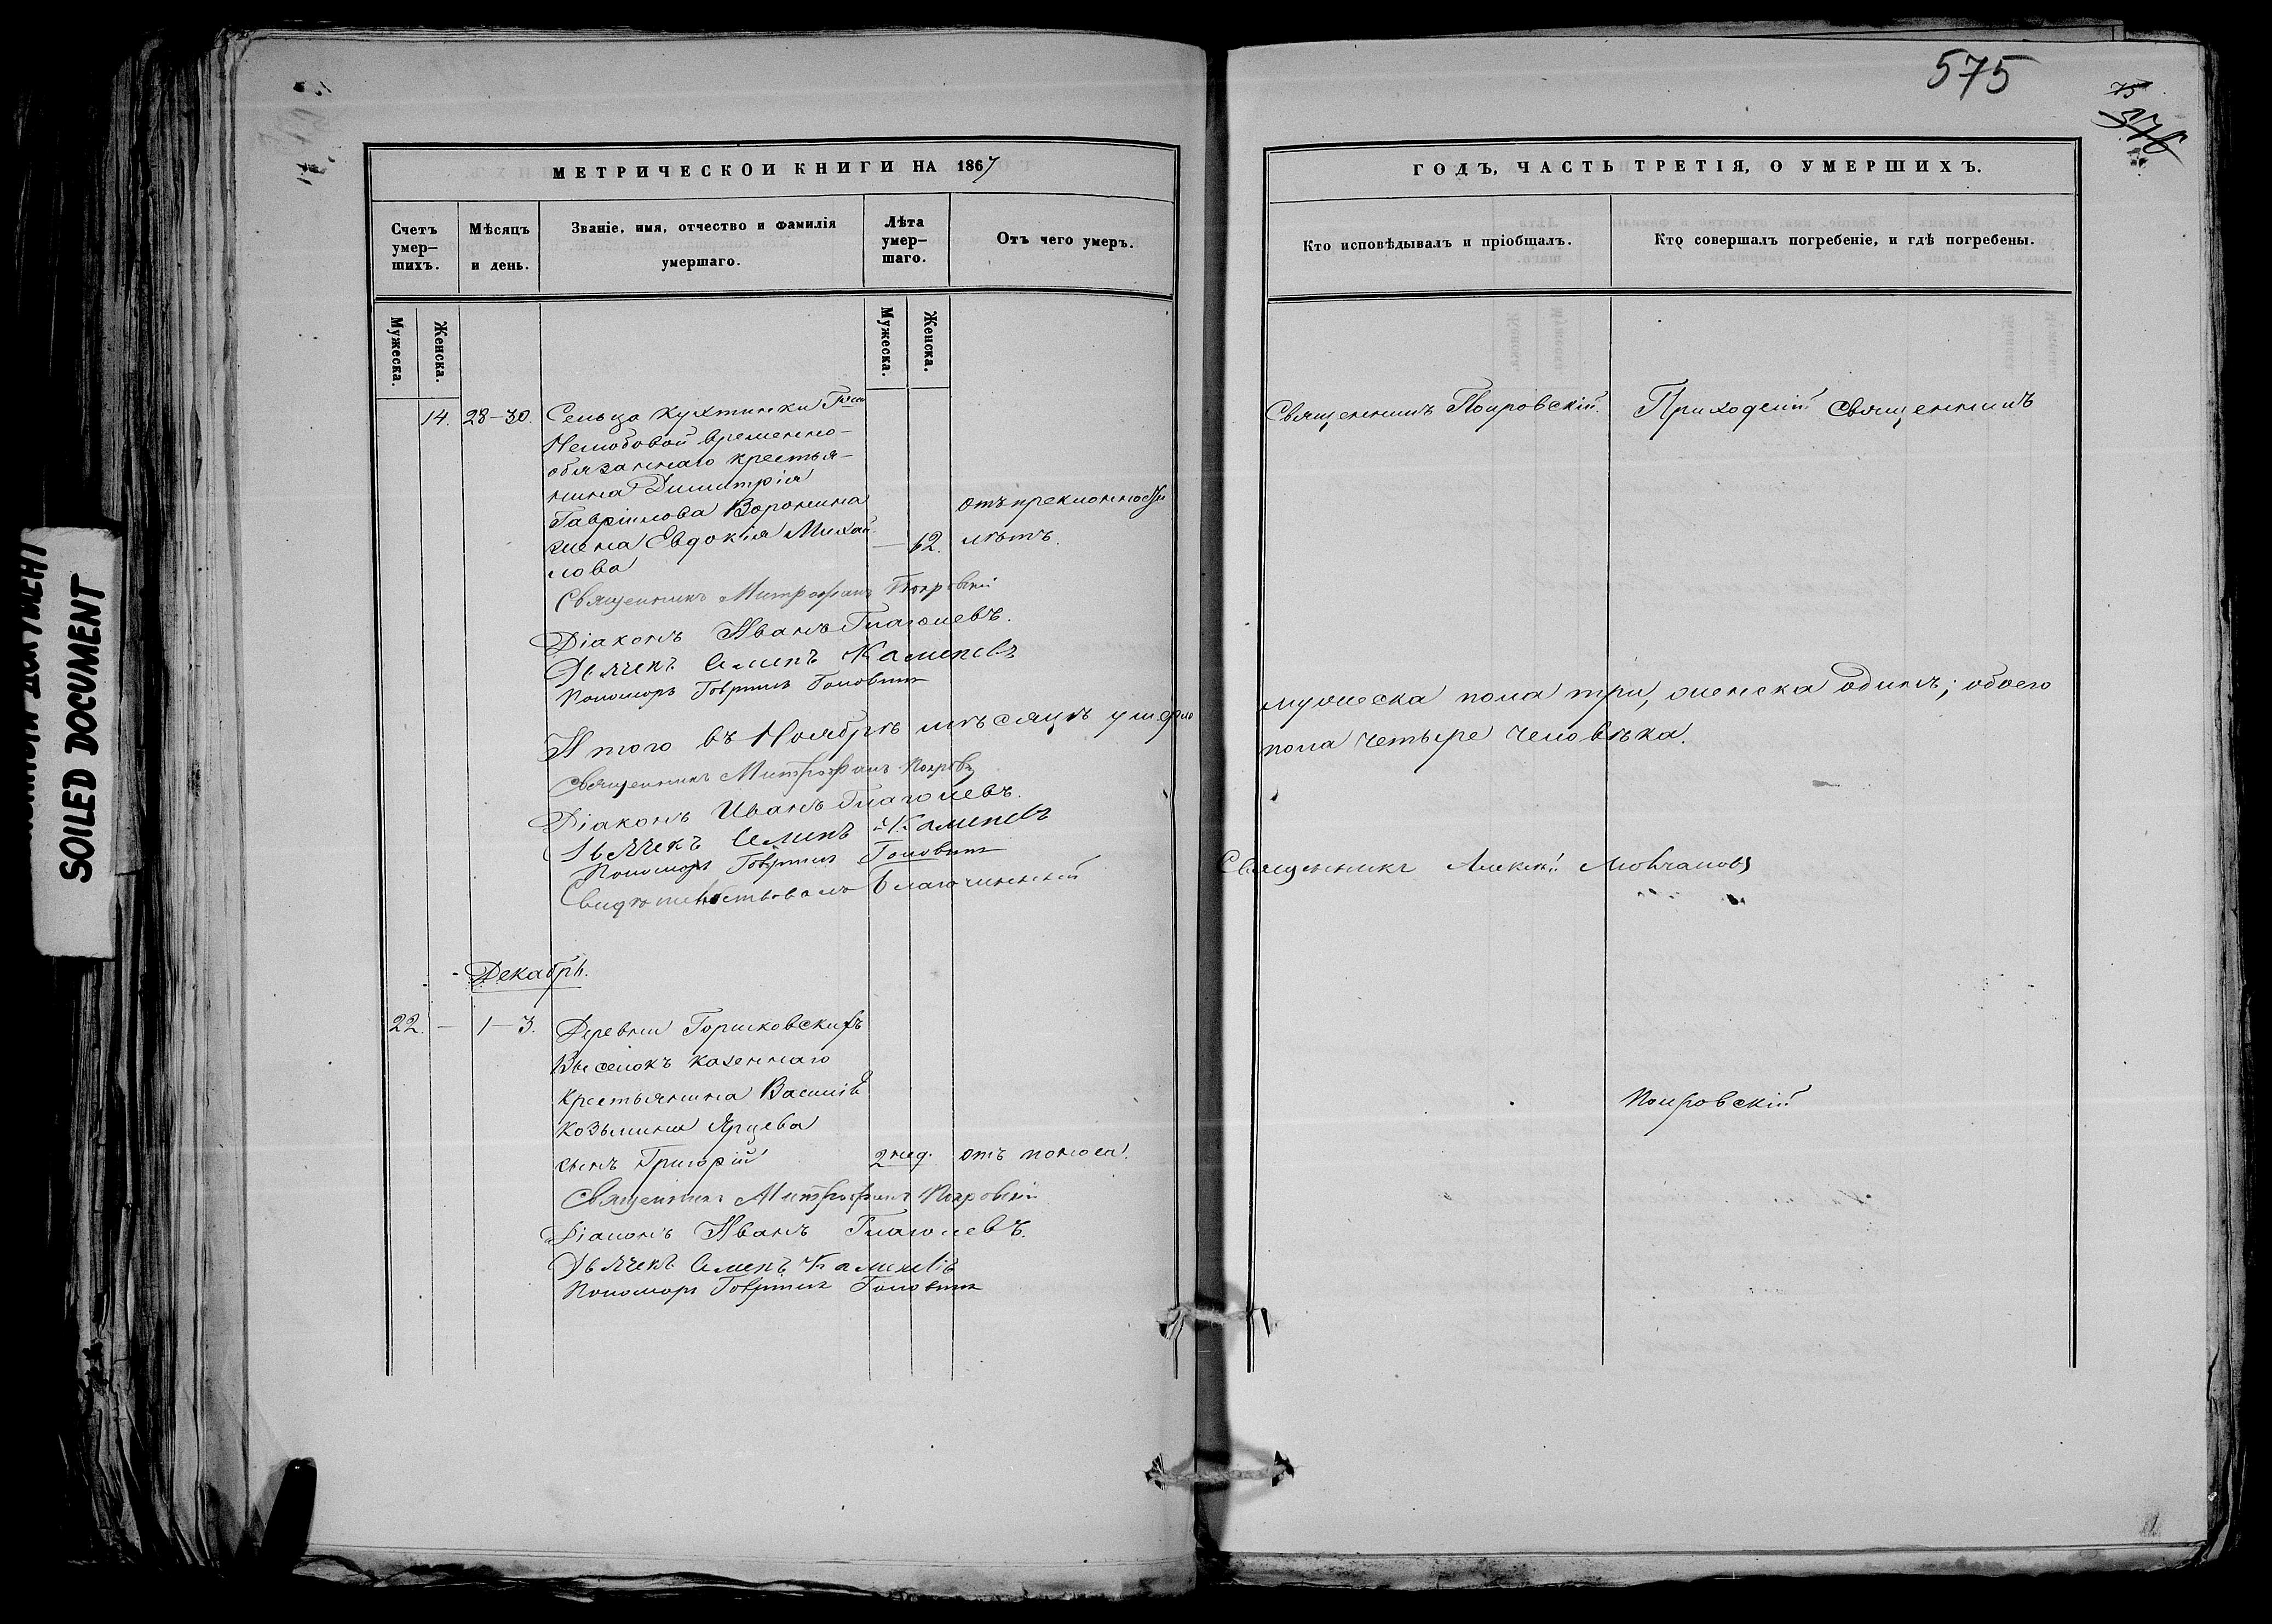 575
75
576
SOILED DOCUMENT
МЕТРИЧЕСКОЙ КНИГИ НА 1867
Счетъ умер-
шихъ.
Мѣсяцъ
и день.
Званіе, имя, отчество и фамилія
умершаго.
Лѣта
умер-
шаго.
Отъ чего умеръ.
Мужеска.
Женска.
Мужеска.
Женска.
14. 28-30. Сельца Кухтинки Гжи
временно-
обязаннаго крестья-
нина Димитрія
Гавріилова Воронина
жена Евдокія Михай-
лова
— 62. отъ преклонности
лѣтъ.
Священникъ Митрофанъ Покровскій
Діаконъ Иванъ Глаголевъ.
Дьячекъ Семенъ Каменевъ
Пономарь Гавріилъ Головинъ
Итого въ Ноябрѣ мѣсяцѣ умерло
Священникъ Митрофанъ Покровск
Діаконъ Иванъ Глаголевъ.
Дьячекъ Семенъ Каменевъ
Пономарь Гавріилъ Головинъ
Свидѣтельствовалъ благочинный
Декабрь.
22. — 1-3. Деревни Горшковскихъ
Выселокъ казеннаго
крестьянина Василія
Козьмина Ярцева
сынъ Григорій 2 нед. отъ поноса.
Священникъ Митрофанъ Покровскій
Діаконъ Иванъ Глаголевъ.
Дьячекъ Семенъ Каменевъ
Пономарь Гавріилъ Головинъ
ГОДЪ, ЧАСТЬ ТРЕТІЯ, О УМЕРШИХЪ.
Кто исповѣдывалъ и пріобщалъ.
Кто совершалъ погребеніе, и гдѣ погребены.
Священникъ Покровскій.
Приходскій Священникъ
мужеска пола три, женска одинъ; обоего
пола четыре человѣка.
Священникъ Алексѣй Молчановъ
Покровскій